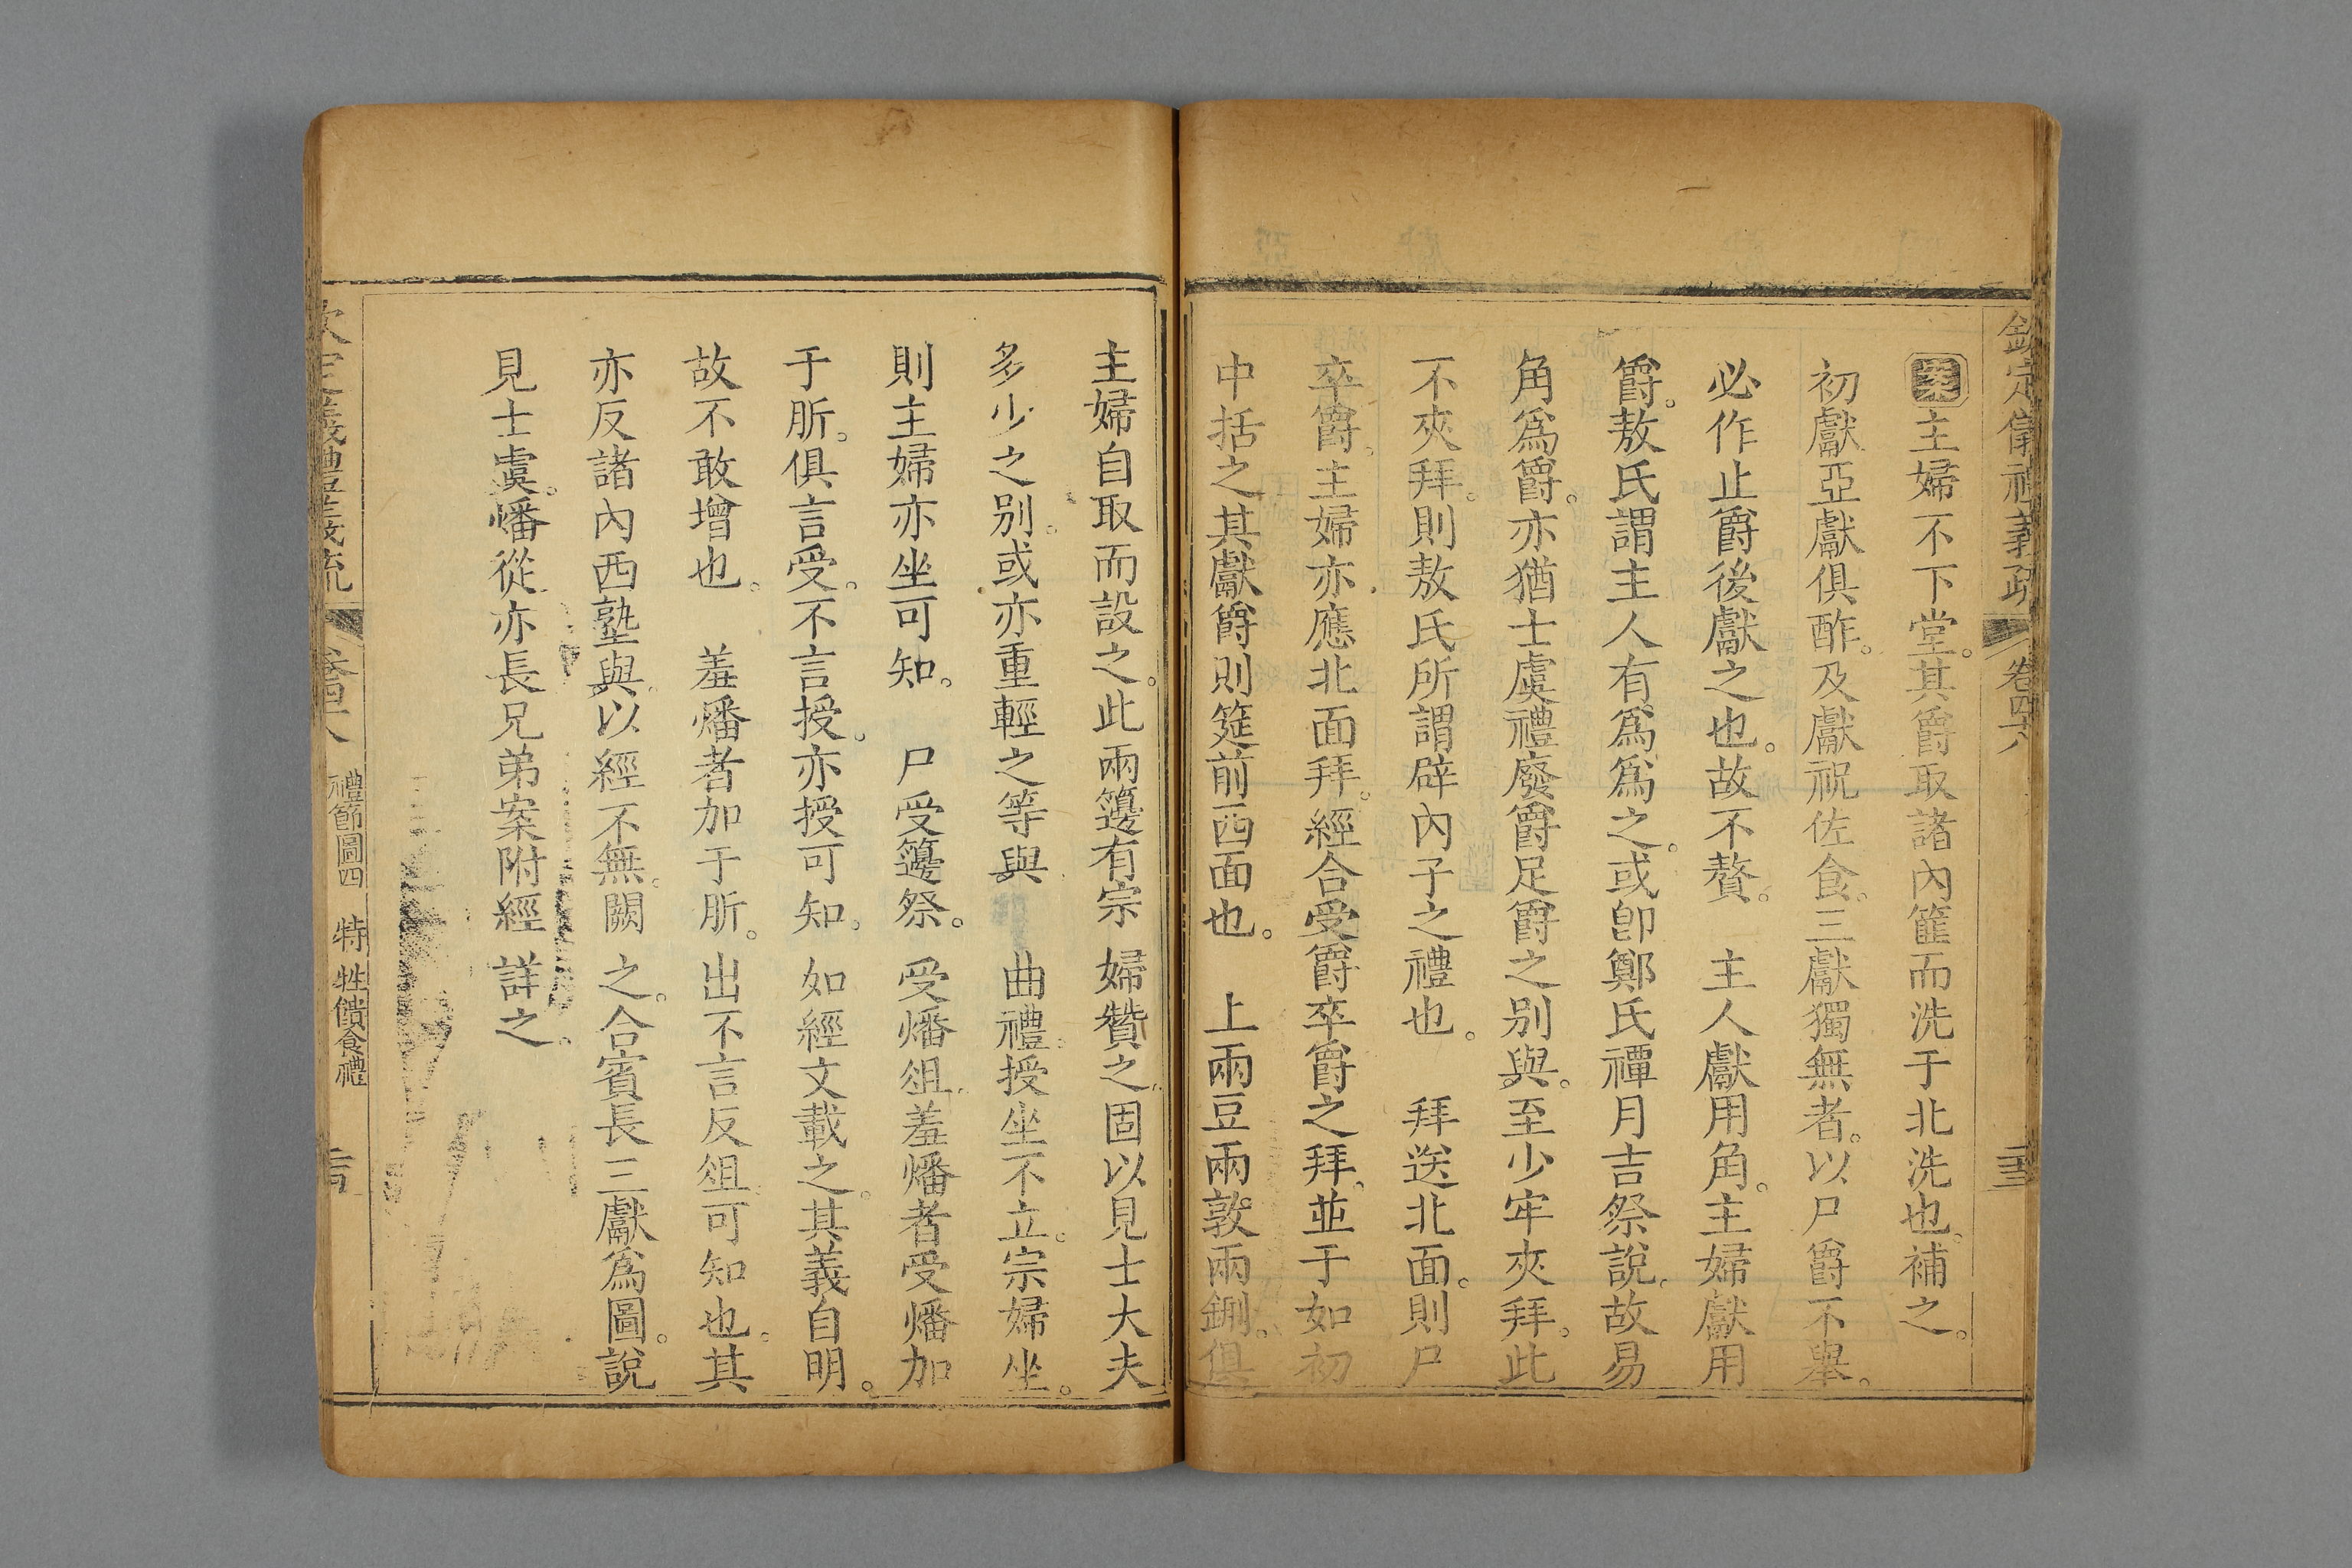 欽定儀禮義疏 卷四十八
案主婦不下堂。其爵取諸內篚而洗于北洗也。補之。
初獻亞獻俱酢。及獻祝佐食。三獻獨無者。以尸爵不舉。
必作止爵後獻之也。故不贅。 主人獻用角。主婦獻用
爵。敖氏謂主人有爲爲之。或卽鄭氏禫月吉祭說。故易
角爲爵。亦猶士虞禮廢爵足爵之别與。至少牢夾拜。此
不夾拜。則敖氏所謂辟內子之禮也。 拜送北面。則尸
卒爵。主婦亦應北面拜。經合受爵卒爵之拜。並于如初
中括之其獻爵則筵前西面也。 上兩豆兩敦兩鉶。俱
主婦自取而設之。此兩籩有宗婦贊之。固以見士大夫
多少之别。或亦重輕之等與 曲禮。授坐不立。宗婦坐。
則主婦亦坐可知。 尸受籩祭。 受燔俎。羞燔者受燔加
于肵。俱言受。不言授。亦授可知。如經文載之。其義自明。
故不敢增也。 羞燔者加于肵。出不言反俎可知也。其
亦反諸內西塾與。以經不無。闕之。合賓長三獻爲圖。說
見士虞。燔從亦長兄弟案附經詳之。
欽定儀禮義疏 卷四十八 禮節圖四 特牲饋食禮